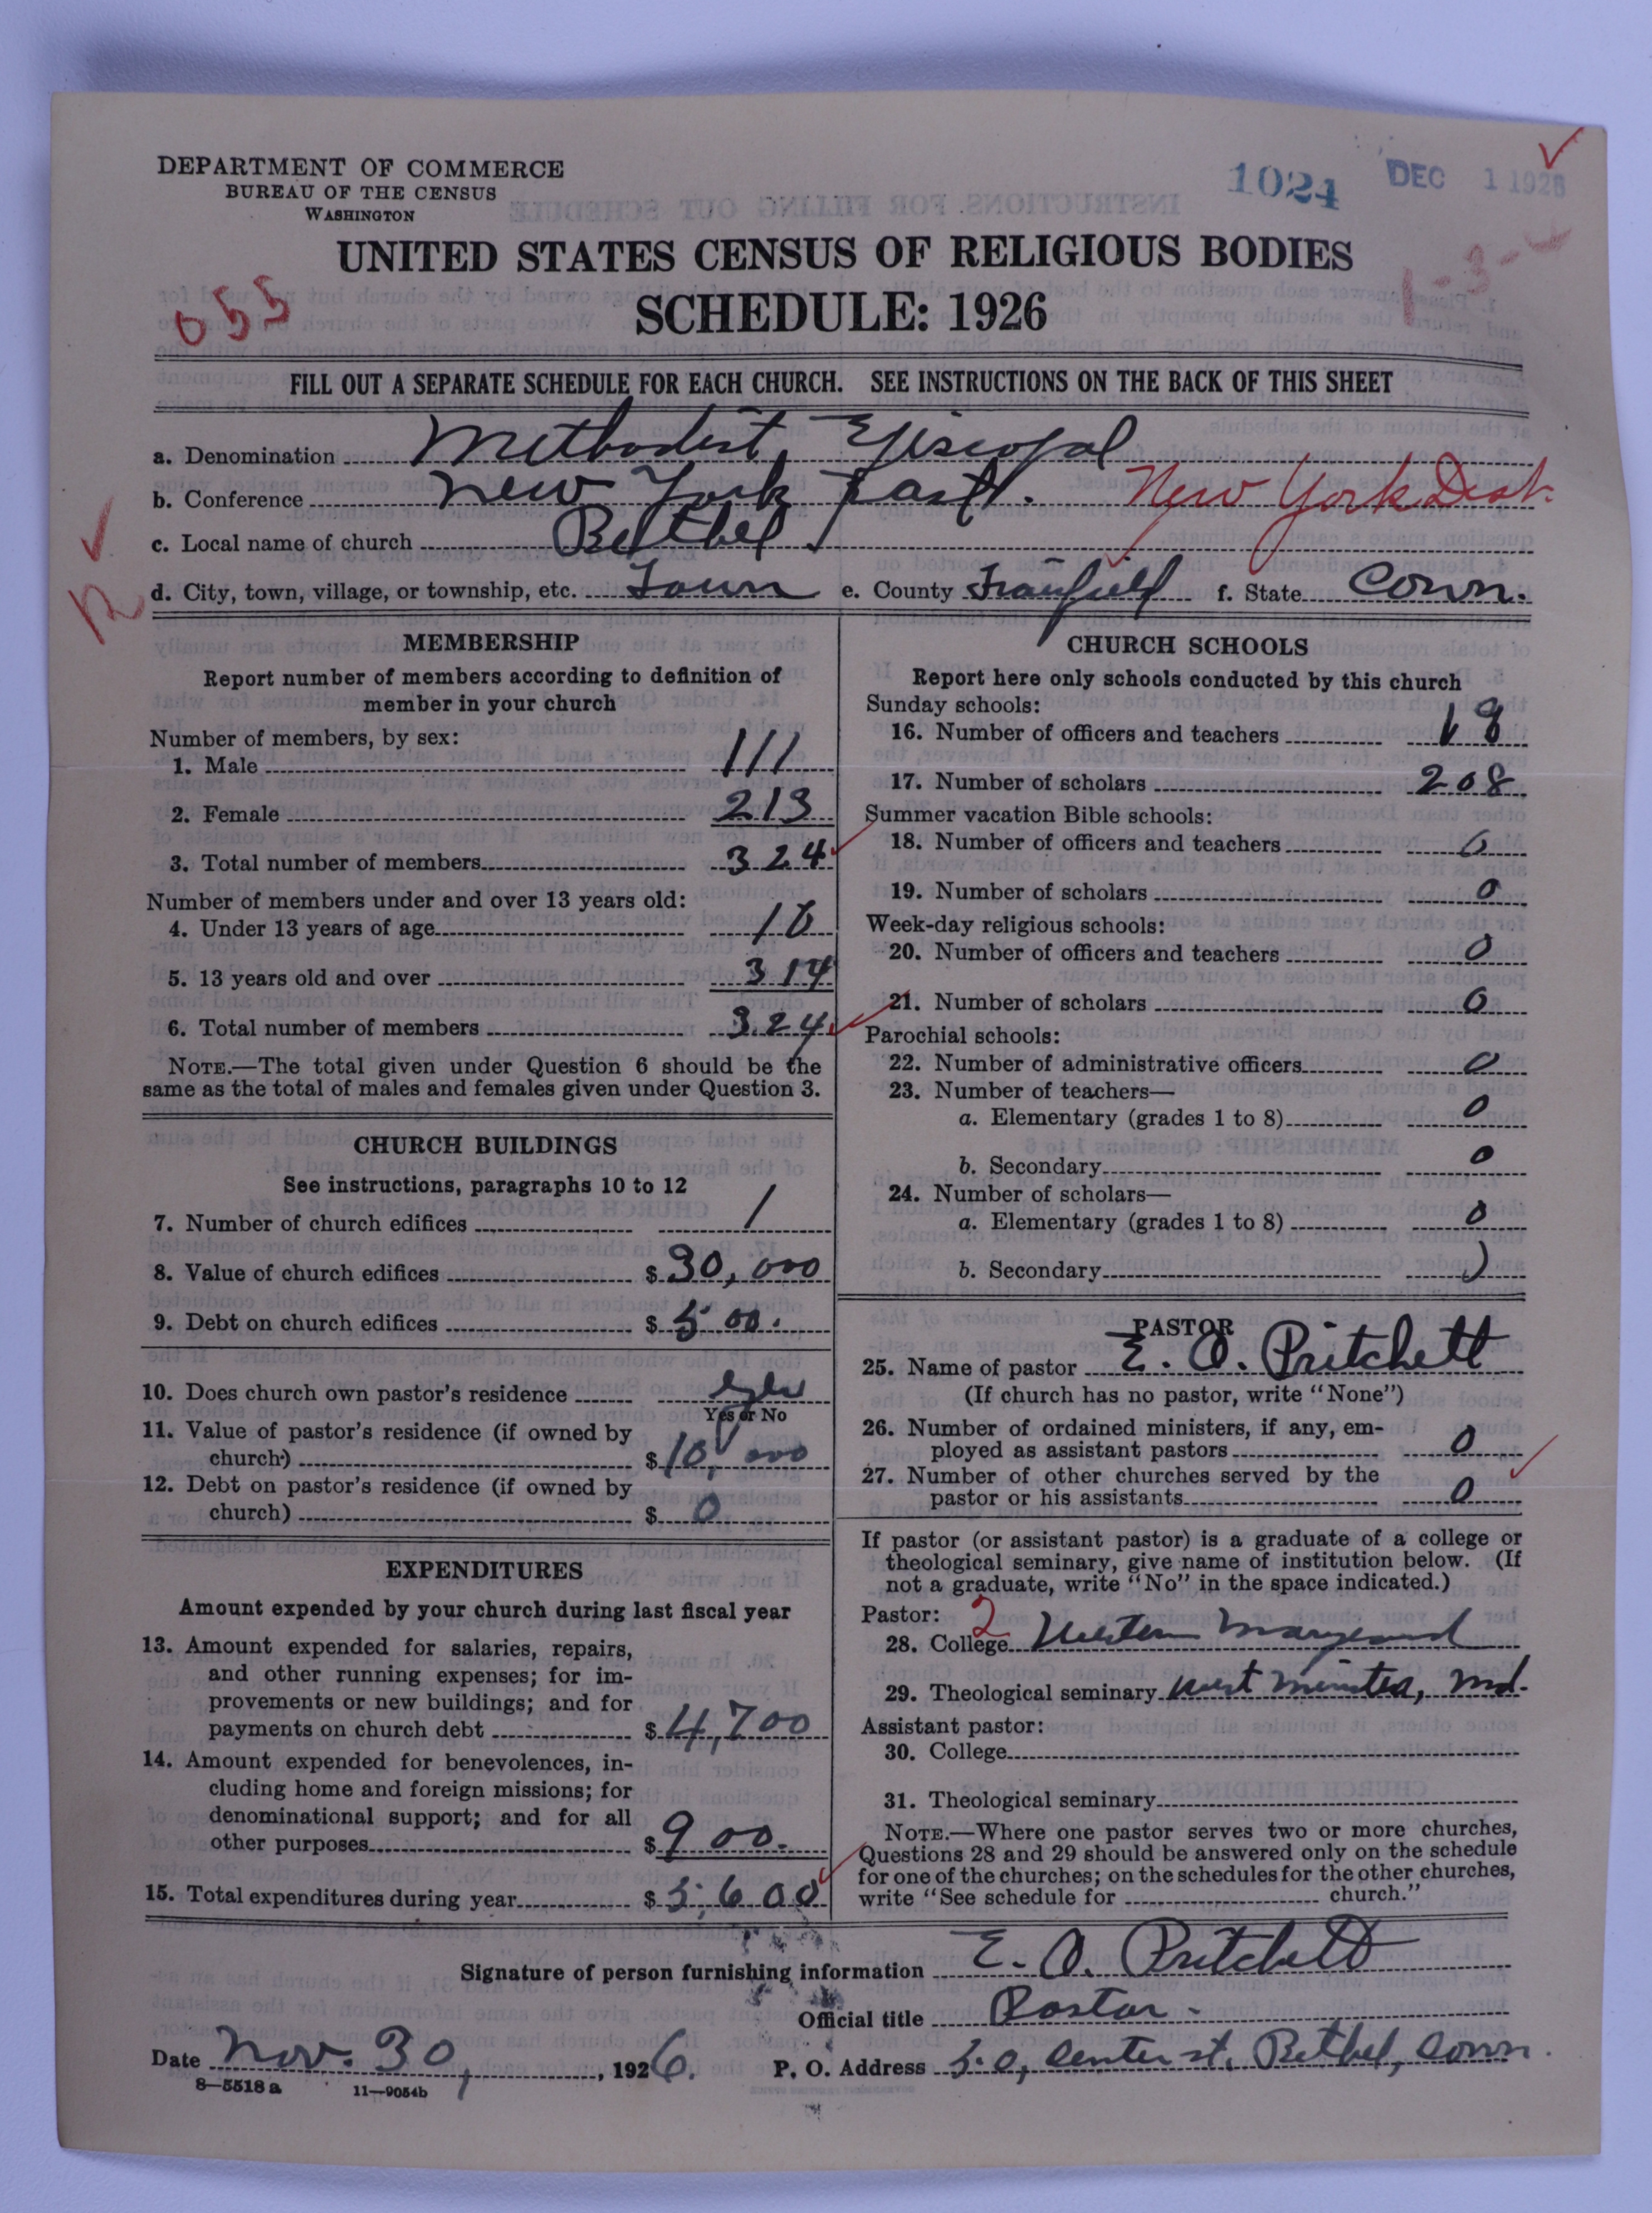 DEPARTMENT OF COMMERCE
BUREAU OF THE CENSUS
WASHINGTON
1024 DEC 1 1926
UNITED STATES CENSUS OF RELIGIOUS BODIES
SCHEDULE: 1926
055
1-3-
FILL OUT A SEPARATE SCHEDULE FOR EACH CHURCH. SEE INSTRUCTIONS ON THE BACK OF THIS SHEET
a. Denomination Methodist Episcopal
b. Conference New York East. New York Dist.
c. Local name of church Bethel
d. City, town, village, or township, etc. Town e. County Fairfield f. State Conn.
MEMBERSHIP
Report number of members according to definition of
member in your church
Number of members, by sex:
1. Male 111
2. Female 213
3. Total number of members 324
Number of members under and over 13 years old:
4. Under 13 years of age 10
5. 13 years old and over 314
6. Total number of members 324
NOTE.—The total given under Question 6 should be the
same as the total of males and females given under Question 3.
CHURCH BUILDINGS
See instructions, paragraphs 10 to 12
7. Number of church edifices 1
8. Value of church edifices $ 30,000
9. Debt on church edifices $ 500.
10. Does church own pastor's residence Yes
Yes or No
11. Value of pastor's residence (if owned by
church) $ 10,000
12. Debt on pastor's residence (if owned by
church) $ 0
EXPENDITURES
Amount expended by your church during last fiscal year
13. Amount expended for salaries, repairs,
and other running expenses; for im-
provements or new buildings; and for
payments on church debt $ 4,700
14. Amount expended for benevolences, in-
cluding home and foreign missions; for
denominational support; and for all
other purposes $ 900.
15. Total expenditures during year $ 5,600
CHURCH SCHOOLS
Report here only schools conducted by this church
Sunday schools:
16. Number of officers and teachers 18
17. Number of scholars 208
Summer vacation Bible schools:
18. Number of officers and teachers 0
19. Number of scholars 0
Week-day religious schools:
20. Number of officers and teachers 0
21. Number of scholars 0
Parochial schools:
22. Number of administrative officers 0
23. Number of teachers—
a. Elementary (grades 1 to 8) 0
b. Secondary 0
24. Number of scholars—
a. Elementary (grades 1 to 8) 0
b. Secondary 0
PASTOR
25. Name of pastor E. O. Pritchett
(If church has no pastor, write "None")
26. Number of ordained ministers, if any, em-
ployed as assistant pastors 0
27. Number of other churches served by the
pastor or his assistants 0
If pastor (or assistant pastor) is a graduate of a college or
theological seminary, give name of institution below. (If
not a graduate, write "No" in the space indicated.)
Pastor: 2
28. College Western Maryland
29. Theological seminary West Minster, Md.
Assistant pastor:
30. College
31. Theological seminary
NOTE.—Where one pastor serves two or more churches,
Questions 28 and 29 should be answered only on the schedule
for one of the churches; on the schedules for the other churches,
write "See schedule for church."
Signature of person furnishing information E. O. Pritchett
Official title Pastor.
Date Nov. 30, 1926. P. O. Address 50, Center st, Bethel, Conn.
8—5518 a 11—9054b